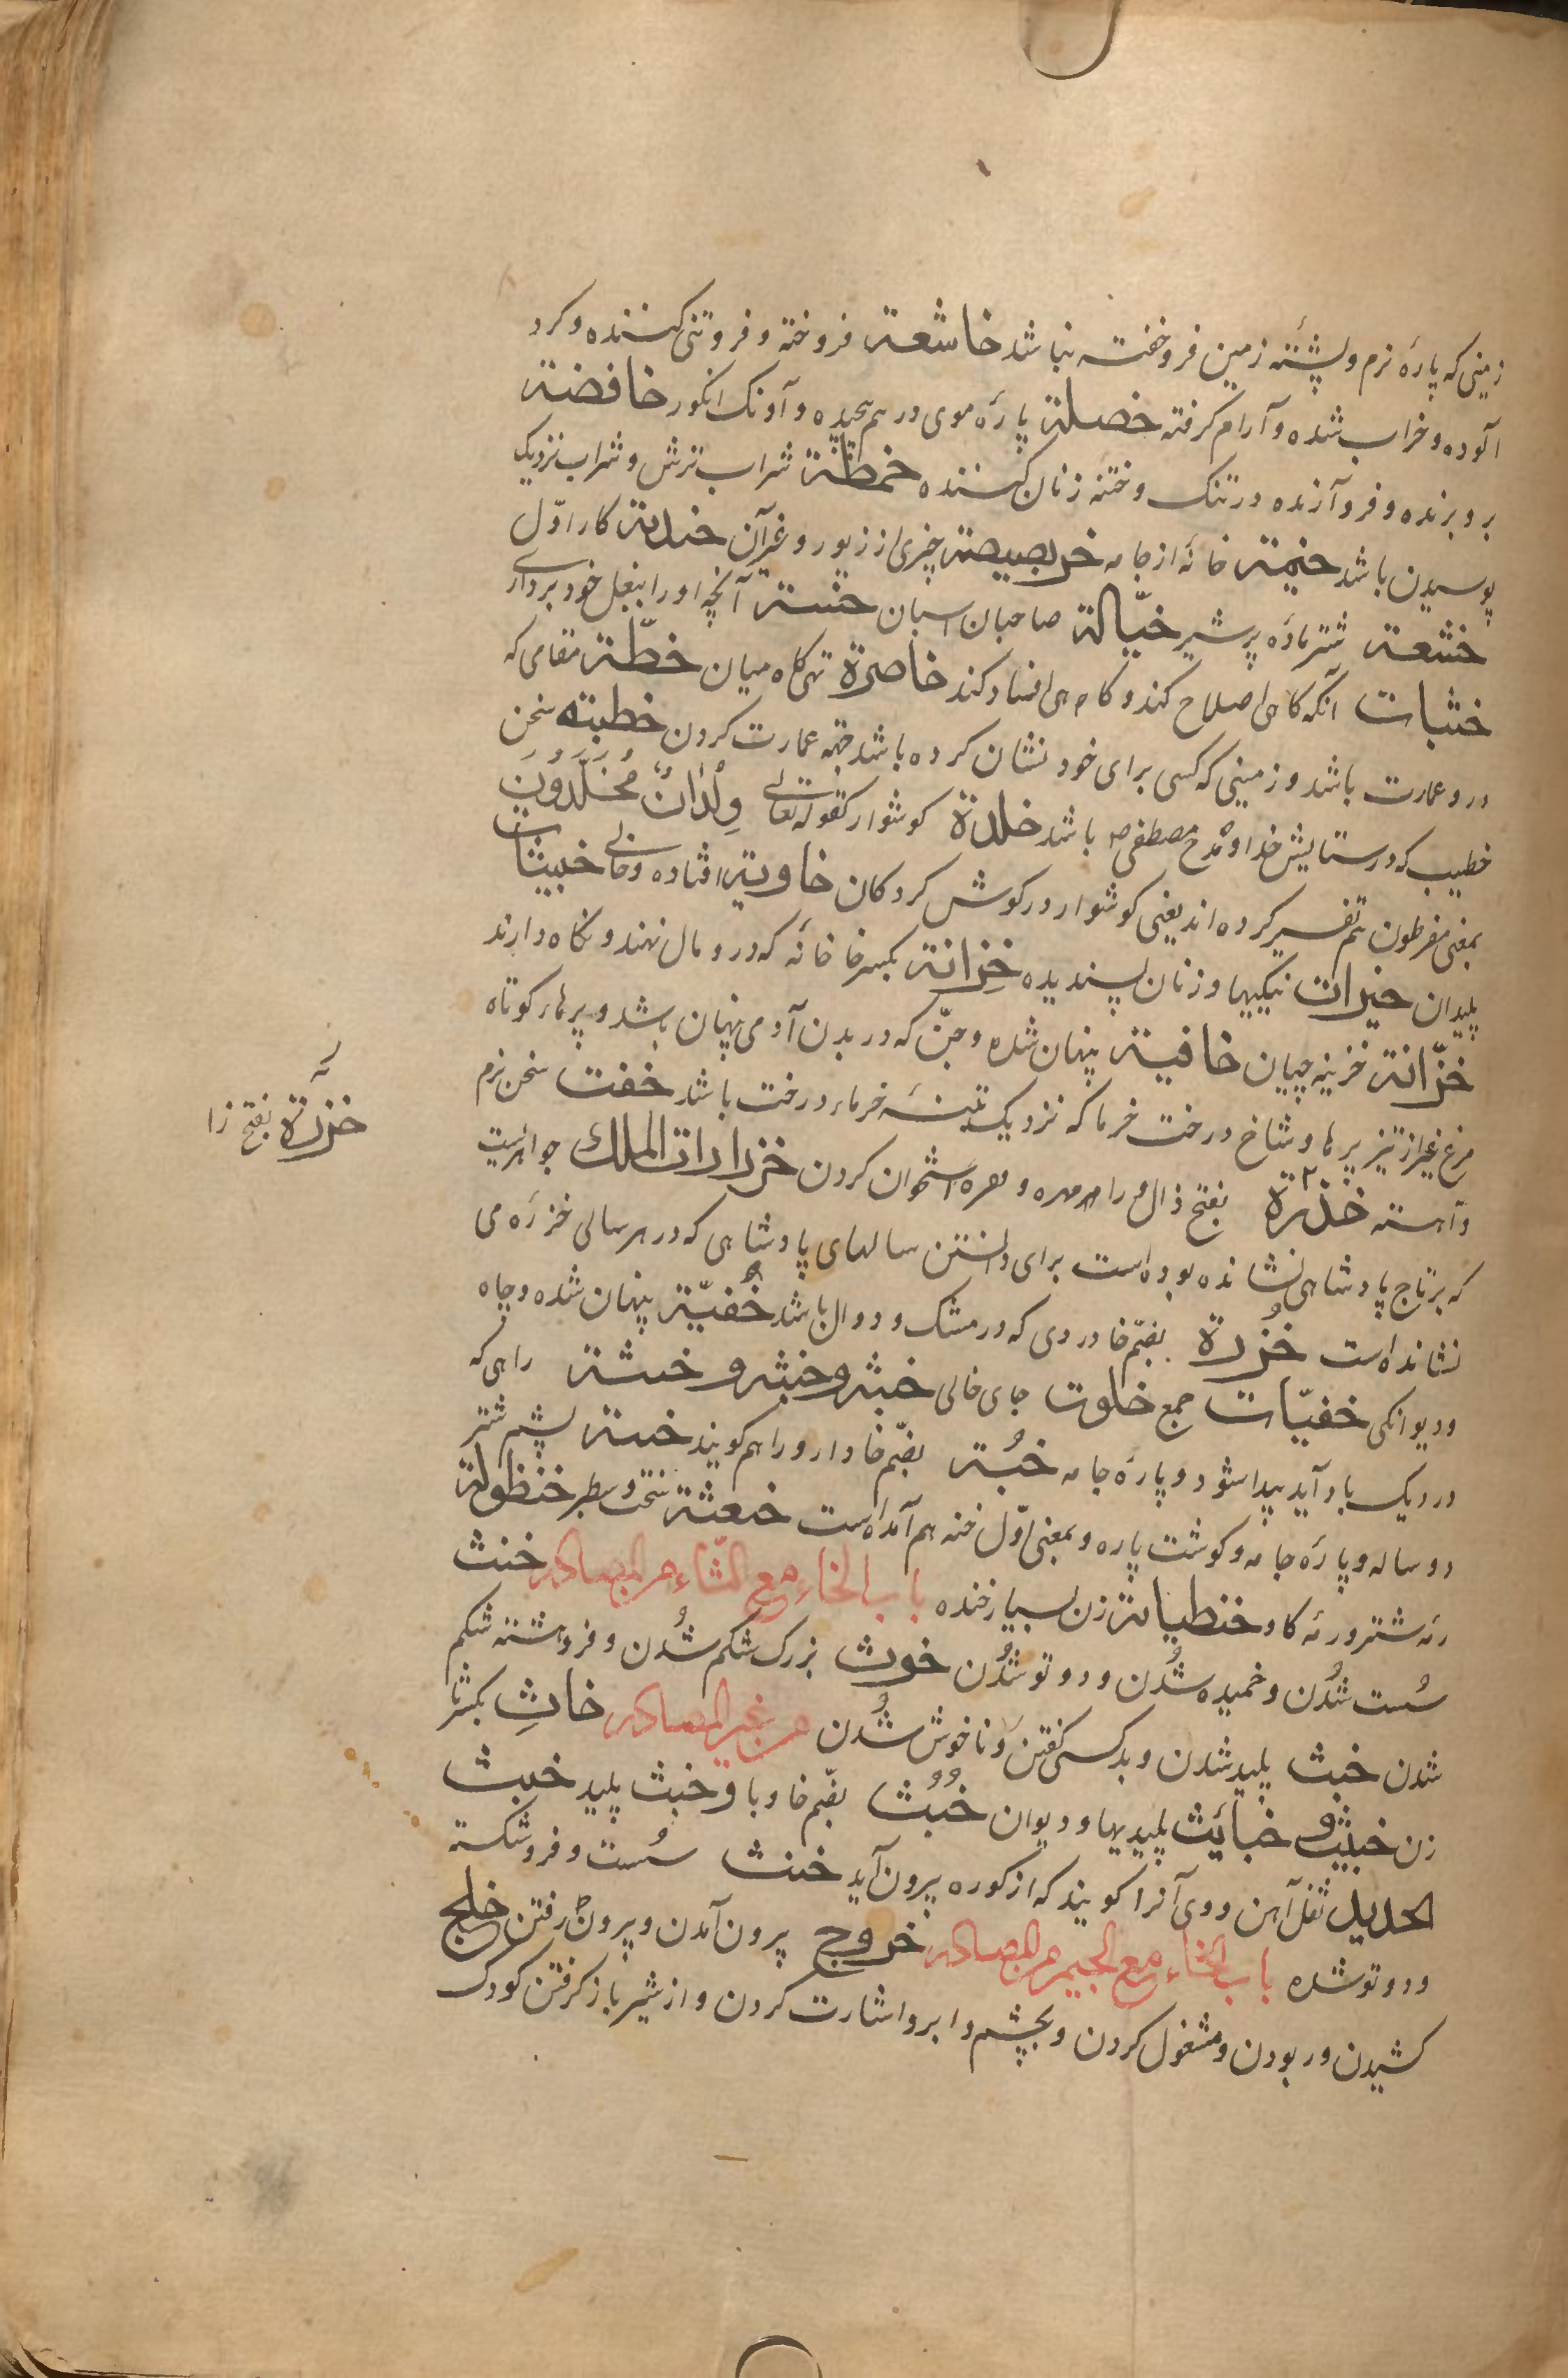 زمینی که پارهٔ نرم و پشتهٔ زمین فروخفته نباشد خاشعة فروخته و فروتنی کننده و کرد
آلوده و خراب شده و آرام کرفته خصلة پارهٔ موی درهم پیچیده و آونک انکور خافضة
بروبرنده و فروآرنده در تنک و ختنه زنان کننده خمطة شراب ترش و شراب نزدیک
پوسیدن باشد خیمة خانهٔ از جامه خربصیصة چیزی از زیور و غیرآن خدبة کار اوّل
خشعة شتر مادهٔ پرشیر خیّالة صاحبان اسبان خشتة آنچه او را ببغل خود برداری
خشبات آنکه کاهی اصلاح کند و کاهی افساد کند خاصرة تهی کاه میان خطّة مقامی که
درو عمارت باشد و زمینی که کسی برای خود نشان کرده باشد جهة عمارت کردن خطبته سخن
خطیب که در ستایش خدا و مدح مصطفی ص باشد خلدة کوشوار کقوله تعالی وِلْدَانٌ مُخَلَّدُونَ
بمعنی مقرطون هم تفسیر کرده اند یعنی کوشوار در کوش کردکان خاویة افتاده و خالی خبیثات
پلیدان خیرات نیکیها و زنان پسندیده خِزانة بکسر خا خانهٔ که درو مال نهند و نکاه دارند
خزّانة خزینه چیان خافیة پنهان شده و جنّ که در بدن آدمی پنهان باشد و پرهاء کوتاه
مرغ غیر از تیز پرها و شاخ درخت خرما که نزدیک تنهٔ خرماء درخت باشد خفت سخن نرم
و آهسته خذرة بفتح ذال و را مهرمهره و مهرهٔ استخوان کردن خزرارات الملک جواهریست
که بر تاج پادشاهی نشانده بوده است برای دانستن سالهای پادشاهی که در هر سالی خزرهٔ می
نشانداه است خُزرة بضمّ خا دردی که در مشک و دوال باشد خُفیّة پنهان شده و چاه
و دیوانکی خفیّات جمع خلوت جای خالی خبثه و خبثه و خبثة راهی که
در ریک باد آید پیدا شود و پارهٔ جامه خُبة بضمّ خا دارو را هم کویند خبتة پشم شتر
دو ساله و پارهٔ جامه و کوشت پاره و بمعنی اوّل خبه هم آمداه است خمعثة سخت و سطبر خنظولة
رمهٔ شتر و رمهٔ کاو خنطیانة زن بسیار خنده باب الخاء مع الثّاء من المصادر خنث
سُست شدُن و خمیده شدُن و دوتو شدُن خوث بزرک شکم شدُن و فروهشته شکم
شدن خبث پلید شدن و بد کسی کفتن و ناخوش شدُن من غیر المصادر خاثِ بکسر ثا
زن خبیث و خبائث پلیدیها و دیوان خُبُث بضمّ خا و با و خبث پلید خبث
الحدید ثفل آهن و وی آنرا کویند که از کوره بیرون آید خنث سُست و فروشکسته
و دوتو شده باب الخاء مع الجیم من المصادر خروج بیرون آمدن و بیرون رفتن خلج
کشیدن و ربودن و مشغول کردن و بچشم و ابرو اشارت کردن و از شیر باز کرفتن کودک
خزرة بفتح زا